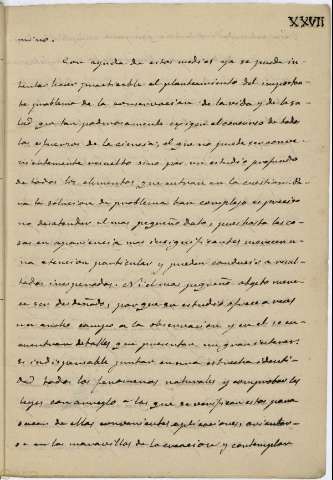 XXVII
mino.
Con ayuda de estos medios ya se puede in-
tentar hacer practicable el planteamiento del importan-
te problema de la conservacion de la vida y de la sa-
lud que tan poderosamente exige el concurso de todos
los esfuerzos de la ciencia, el que no puede ser conve-
nientemente resuelto sino por un estudio profundo
de todos los elementos que entran en la cuestion. Pa-
ra la solucion de problema tan complejo es preciso
no desatender el mas pequeño dato, pues hasta las co-
sas en apariencia mas insignificantes merecen u-
na atencion particular y pueden conducir a resul-
tados inesperados. Ni el mas pequeño objeto mere-
ce ser desdeñado, porque su estudio ofrece a veces
un ancho campo a la observacion y en el se en-
cuentran detalles que presentan un gran interes:
es indispensable juntar en una estrecha identi-
dad todos los fenomenos naturales y comprobar las
leyes con arreglo a las que se verifican estos para
sacar de ellas convenientes aplicaciones, orientar-
se en las maravillas de la creacion y contemplar